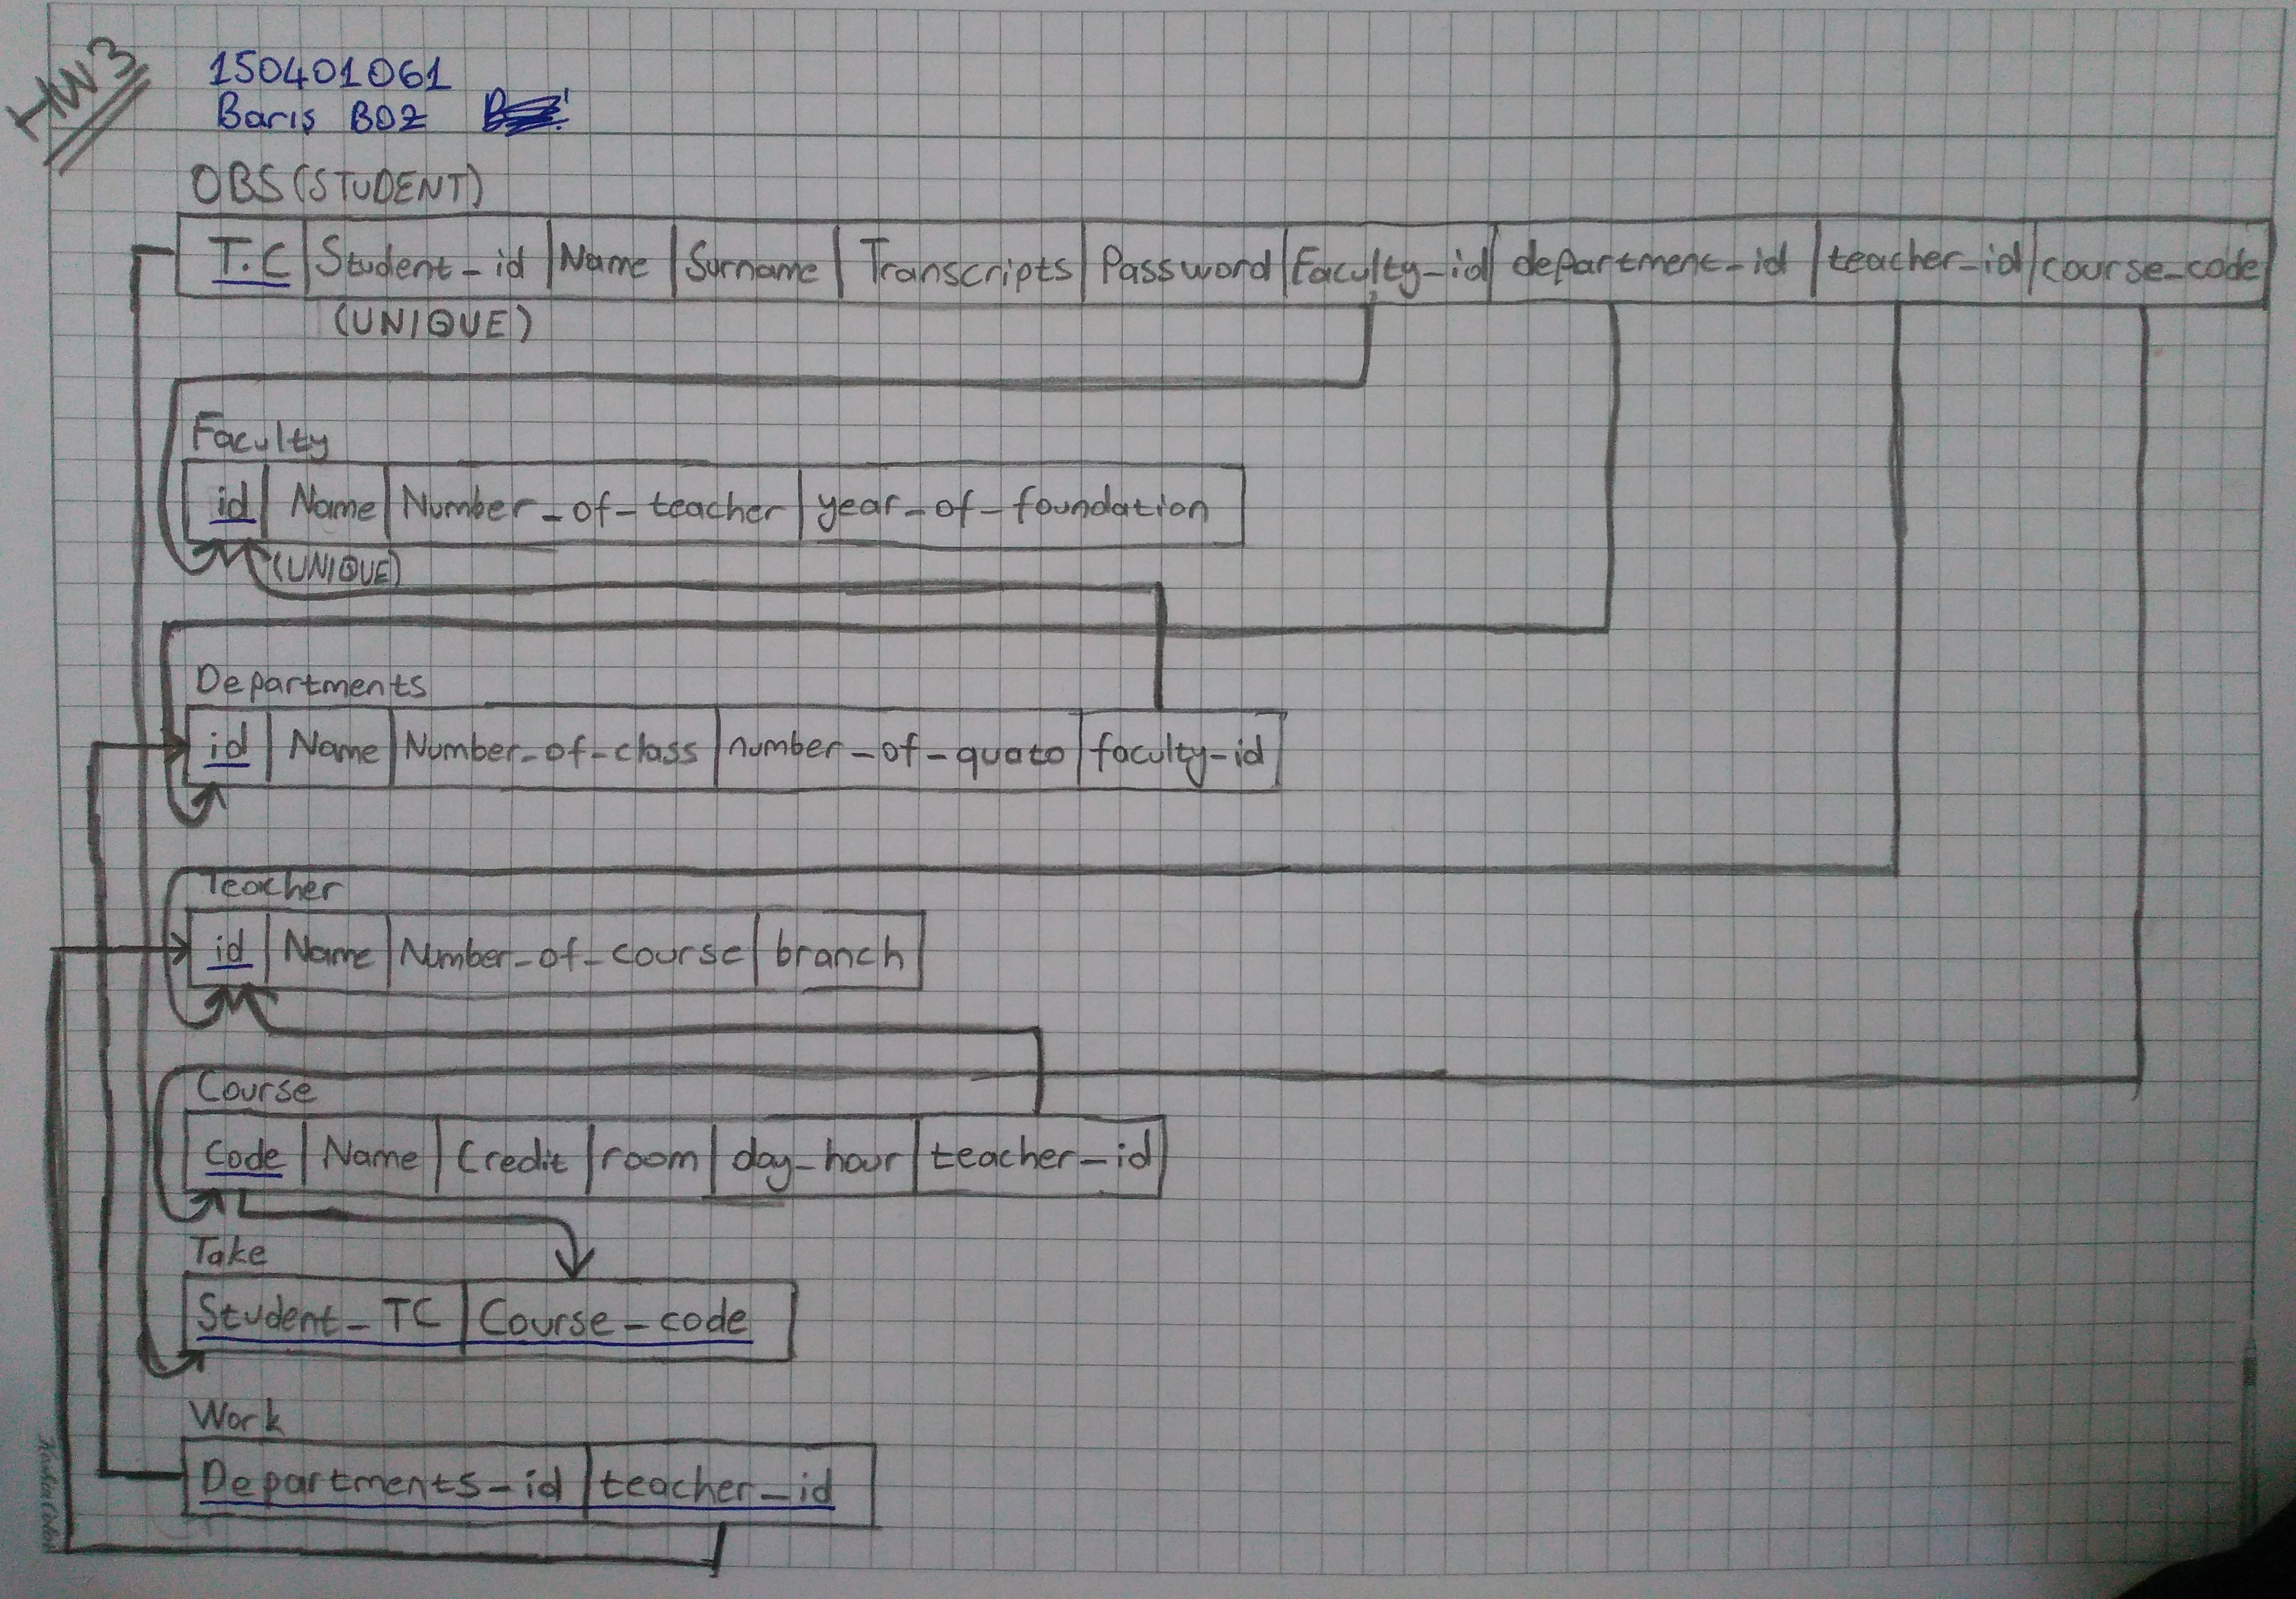 HW3
150401061
Barış BOZ
OBS(STUDENT)
T.C Student_id Name Surname Transcripts Password Faculty_id department_id teacher_id course_code
(UNIQUE)
Faculty
id Name Number_of_teacher year_of_foundation
(UNIQUE)
Departments
id Name Number_of_class number_of_quato faculty_id
Teacher
id Name Number_of_course branch
Course
Code Name Credit room day_hour teacher_id
Take
Student_TC Course_code
Work
Departments_id teacher_id